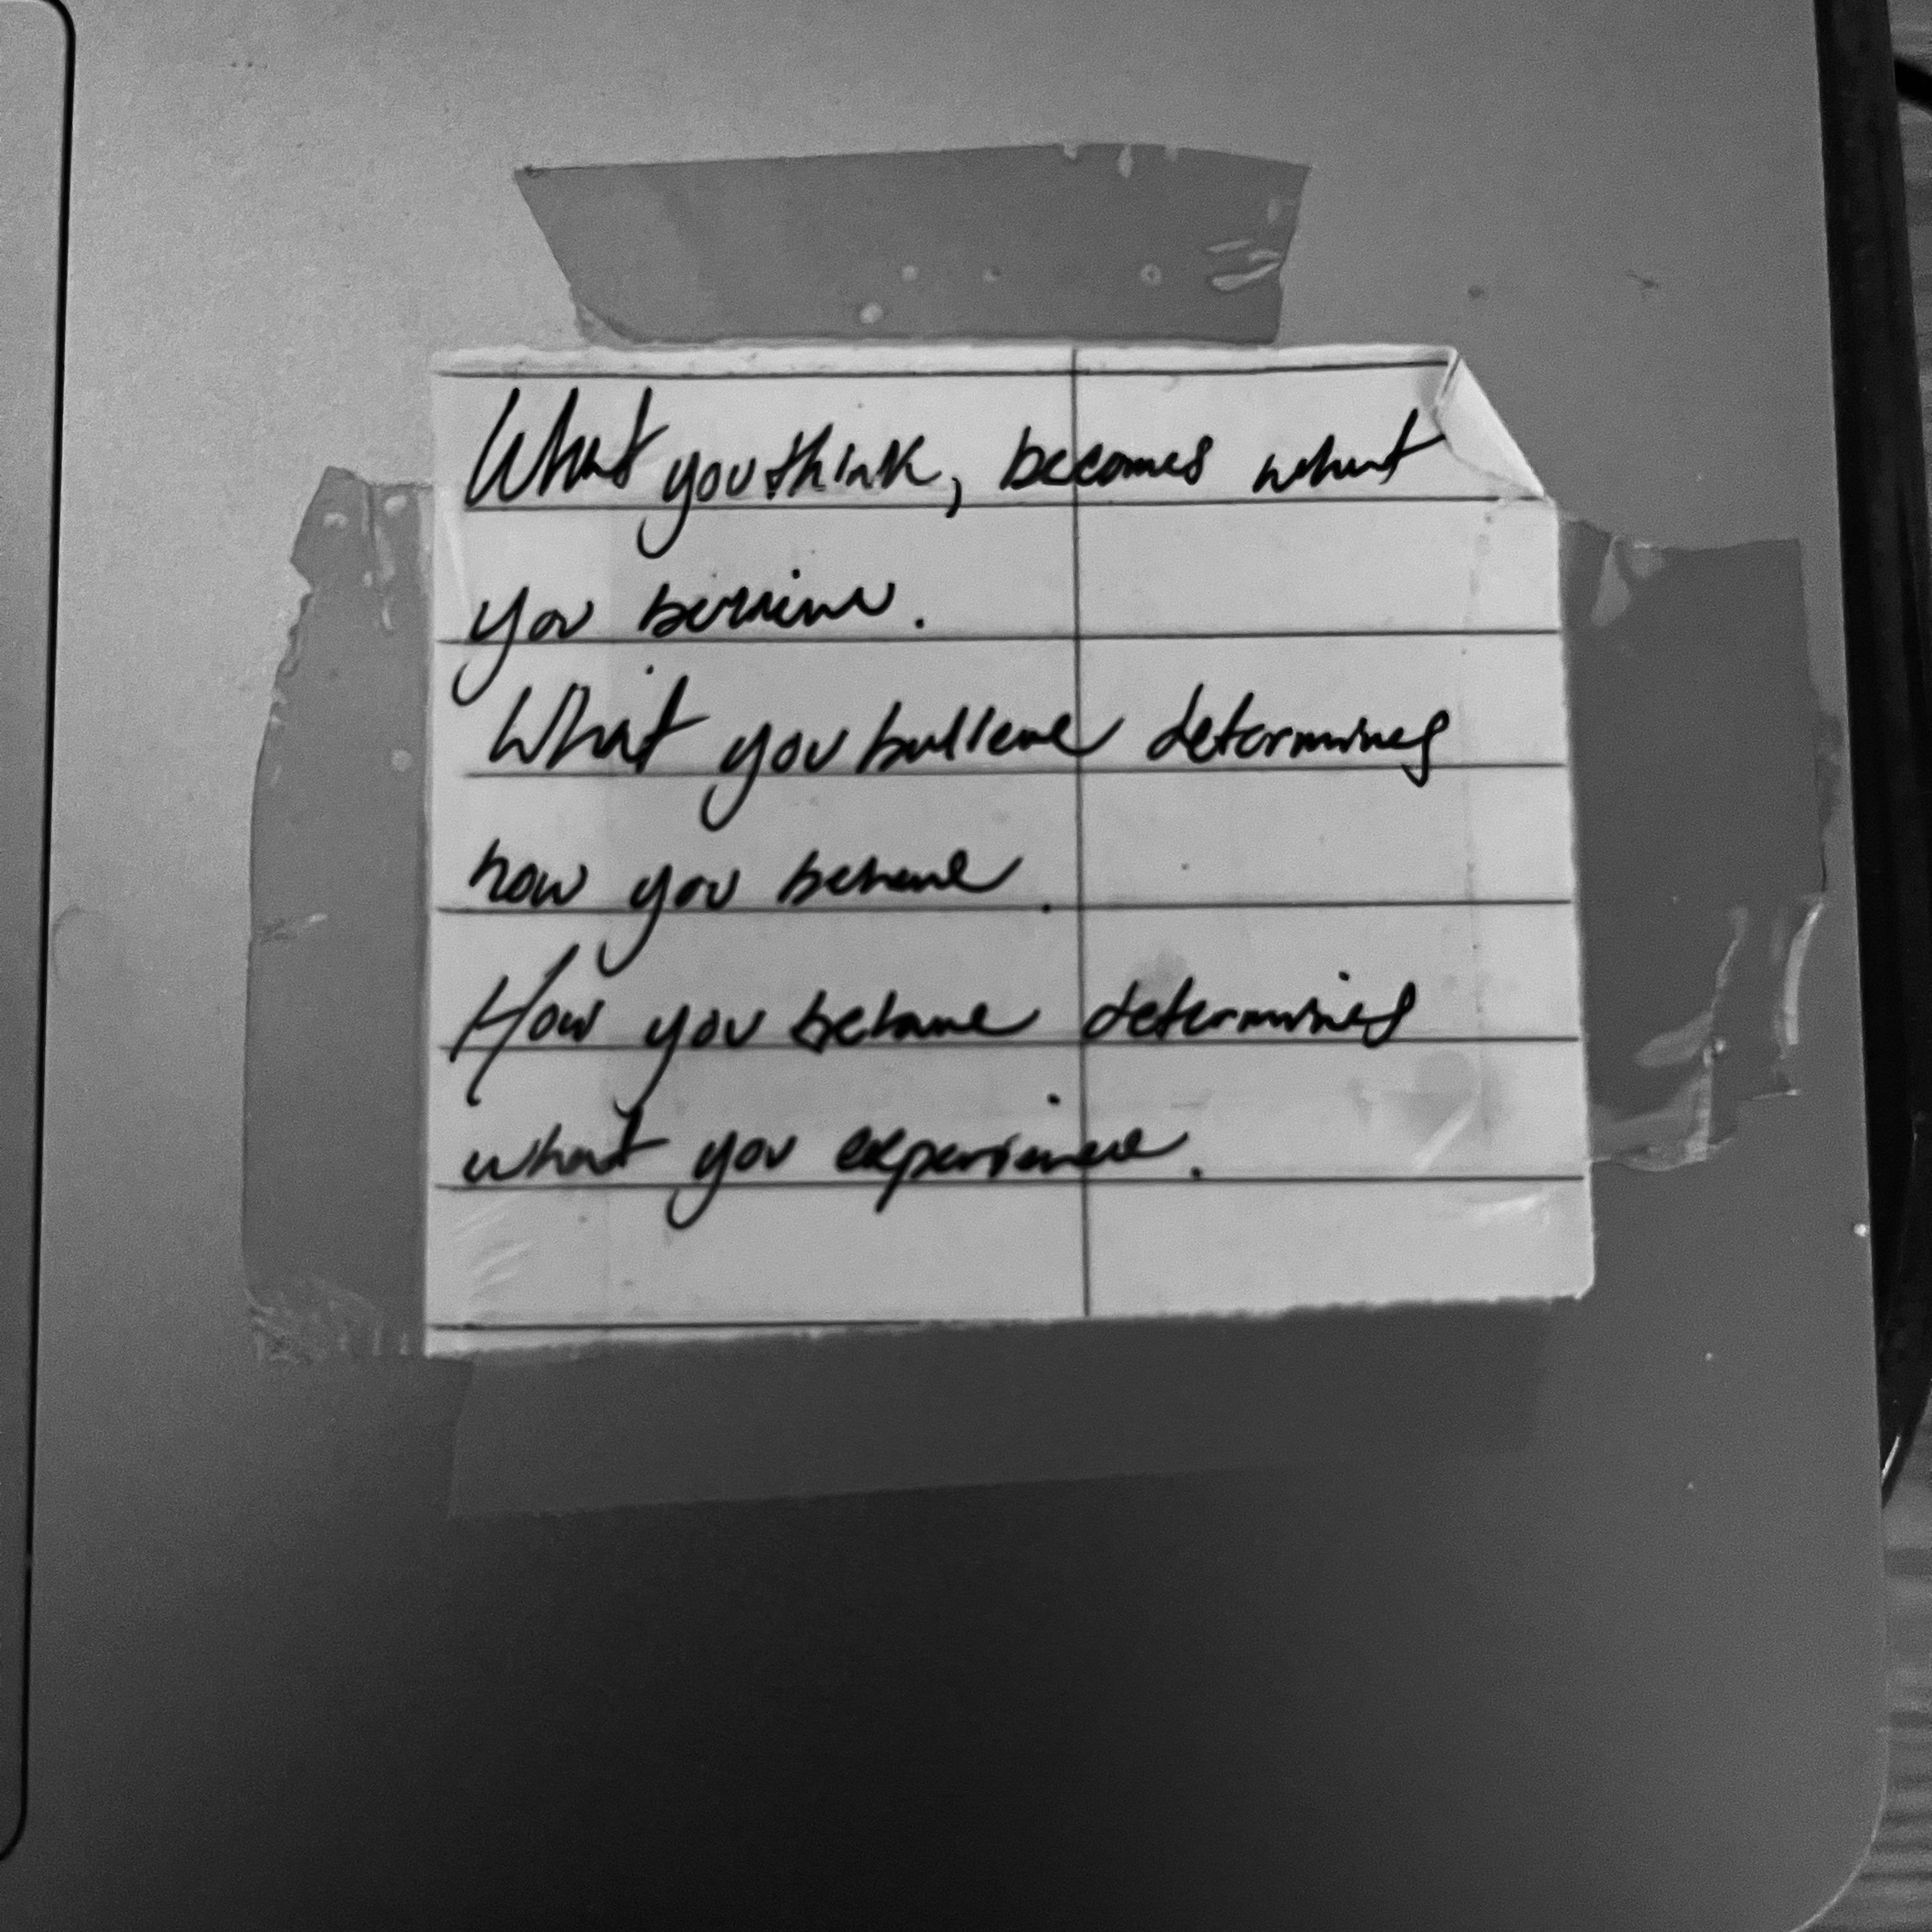 What you think, becomes what
you believe.
What you believe determines
how you behave.
How you behave determines
what you experience.